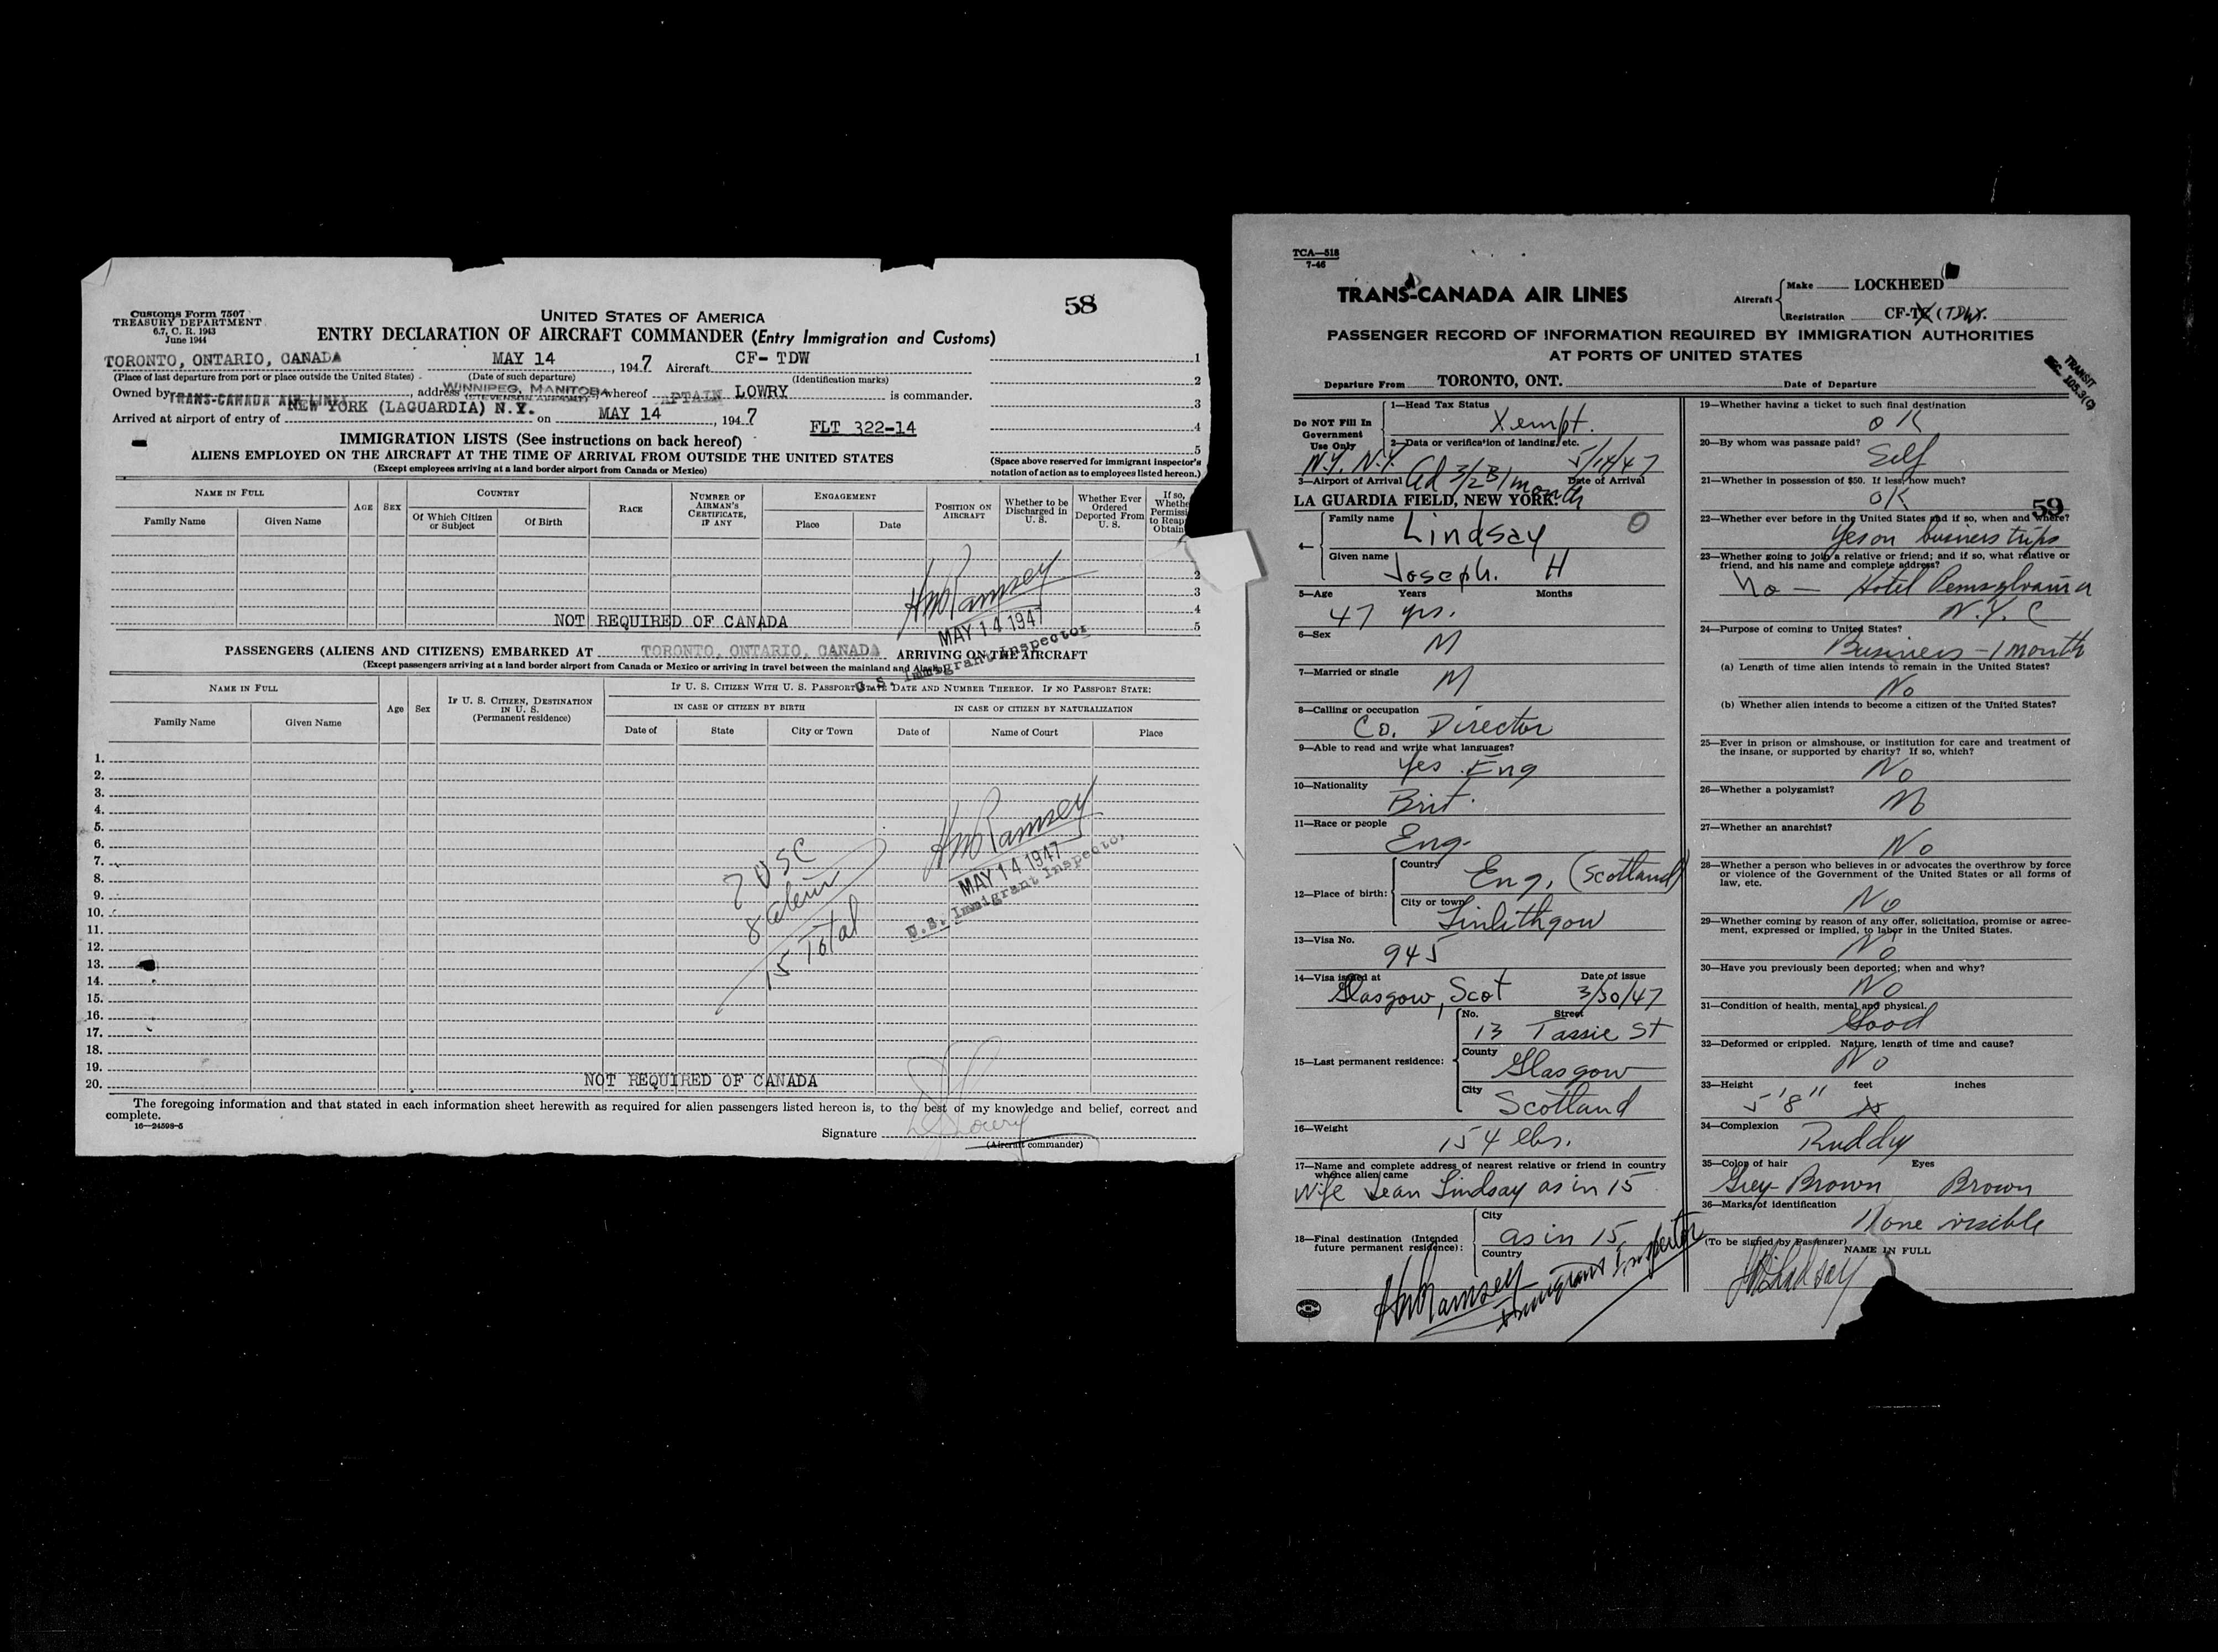 58
Customs Form 7507
TREASURY DEPARTMENT
6.7, C. R. 1943
June 1944
UNITED STATES OF AMERICA
ENTRY DECLARATION OF AIRCRAFT COMMANDER (Entry Immigration and Customs)
TORONTO, ONTARIO, CANADA MAY 14, 1947 Aircraft CF- TDW
(Place of last departure from port or place outside the United States) (Date of such departure) (Identification marks)
Owned by TRANS-CANADA AIR LINES, address WINNIPEG, MANITOBA (STEVENSON AIRPORT) whereof APTAIN LOWRY is commander.
Arrived at airport of entry of NEW YORK (LAGUARDIA) N.Y. on MAY 14, 1947
FLT 322-14
1
2
3
4
5
(Space above reserved for immigrant inspector's notation of action as to employees listed hereon.)
IMMIGRATION LISTS (See instructions on back hereof)
ALIENS EMPLOYED ON THE AIRCRAFT AT THE TIME OF ARRIVAL FROM OUTSIDE THE UNITED STATES
(Except employees arriving at a land border airport from Canada or Mexico)
NAME IN FULL
Family Name Given Name
AGE SEX
COUNTRY
Of Which Citizen or Subject Of Birth
RACE
NUMBER OF AIRMAN'S CERTIFICATE, IF ANY
ENGAGEMENT
Place Date
POSITION ON AIRCRAFT
Whether to be Discharged in U. S.
Whether Ever Ordered Deported From U. S.
If so, Whethe Permissi to Reap Obtain
2
3
4
5
HmRamsey
MAY 14 1947
U.S. Immigrant Inspector
NOT REQUIRED OF CANADA
PASSENGERS (ALIENS AND CITIZENS) EMBARKED AT TORONTO, ONTARIO, CANADA ARRIVING ON THE AIRCRAFT
(Except passengers arriving at a land border airport from Canada or Mexico or arriving in travel between the mainland and Alaska)
NAME IN FULL
Family Name Given Name
Age Sex
IF U. S. CITIZEN, DESTINATION IN U. S.
(Permanent residence)
IF U. S. CITIZEN WITH U. S. PASSPORT STATE DATE AND NUMBER THEREOF. IF NO PASSPORT STATE:
IN CASE OF CITIZEN BY BIRTH IN CASE OF CITIZEN BY NATURALIZATION
Date of State City or Town Date of Name of Court Place
1.
2.
3.
4.
5.
6.
7.
8.
9.
10.
11.
12.
13.
14.
15.
16.
17.
18.
19.
20.
7 USC
8 alien
15 Total
HmRamsey
MAY 14 1947
U.S. Immigrant Inspector
NOT REQUIRED OF CANADA
The foregoing information and that stated in each information sheet herewith as required for alien passengers listed hereon is, to the best of my knowledge and belief, correct and
complete.
16—24598-5
Signature Lowry
(Aircraft commander)
TCA—518
7-46
TRANS-CANADA AIR LINES
Aircraft Make LOCKHEED
Registration CF-TC (TDW).
PASSENGER RECORD OF INFORMATION REQUIRED BY IMMIGRATION AUTHORITIES
AT PORTS OF UNITED STATES
TRANSIT
SEC. 105.3(C)
Departure From TORONTO, ONT. Date of Departure
Do NOT Fill In
Government
Use Only
1—Head Tax Status
Xempt.
2—Data or verification of landing, etc.
N.Y. N.Y. Ad 3/2 B/ 1 month 5/14/47
3—Airport of Arrival Date of Arrival
LA GUARDIA FIELD, NEW YORK.
4— Family name Lindsay O
Given name Joseph. H
5—Age Years Months
47 yrs.
6—Sex
M
7—Married or single
M
8—Calling or occupation
Co. Director
9—Able to read and write what languages?
Yes Eng
10—Nationality
Brit.
11—Race or people
Eng.
12—Place of birth: Country Eng. (Scotland)
City or town Linlithgow
13—Visa No.
945
14—Visa issued at Date of issue
Glasgow, Scot 3/30/47
15—Last permanent residence: No. Street
13 Tassie St
County
Glasgow
City
Scotland
16—Weight
154 lbs.
17—Name and complete address of nearest relative or friend in country
whence alien came
Wife Jean Lindsay as in 15
18—Final destination (Intended
future permanent residence):
City
as in 15
Country
HmRamsey
Immigrant Inspector
19—Whether having a ticket to such final destination
OK
20—By whom was passage paid?
Self
21—Whether in possession of $50. If less, how much?
OK
59
22—Whether ever before in the United States and if so, when and where?
Yes on business trips
23—Whether going to join a relative or friend; and if so, what relative or
friend, and his name and complete address?
No — Hotel Pennsylvania
N.Y.C
24—Purpose of coming to United States?
Business - 1 month
(a) Length of time alien intends to remain in the United States?
No
(b) Whether alien intends to become a citizen of the United States?
25—Ever in prison or almshouse, or institution for care and treatment of
the insane, or supported by charity? If so, which?
No
26—Whether a polygamist?
No
27—Whether an anarchist?
No
28—Whether a person who believes in or advocates the overthrow by force
or violence of the Government of the United States or all forms of
law, etc.
No
29—Whether coming by reason of any offer, solicitation, promise or agree-
ment, expressed or implied, to labor in the United States.
No
30—Have you previously been deported; when and why?
No
31—Condition of health, mental and physical.
Good
32—Deformed or crippled. Nature, length of time and cause?
No
33—Height feet inches
5'8"
34—Complexion
Ruddy
35—Color of hair Eyes
Grey-Brown Brown
36—Marks of identification
None visible
(To be signed by Passenger)
NAME IN FULL
JHLindsay